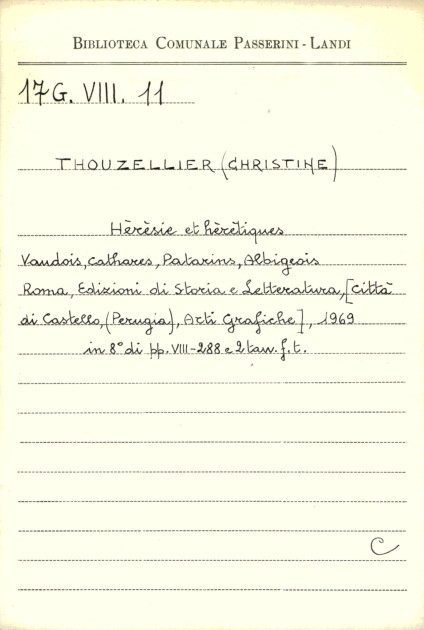 BIBLIOTECA COMUNALE PASSERINI - LANDI
17G. VIII. 11
THOUZELLIER (CHRISTINE)
Hèrèsie et hèrètiques
Vaudois, cathares, Patarins, Albigeois
Roma, Edizioni di Storia e Letteratura, [Città
di Castello, (Perugia), Arti Grafiche], 1969
in 8° di pp. VIII-288 e 2 tav. f. t.
C